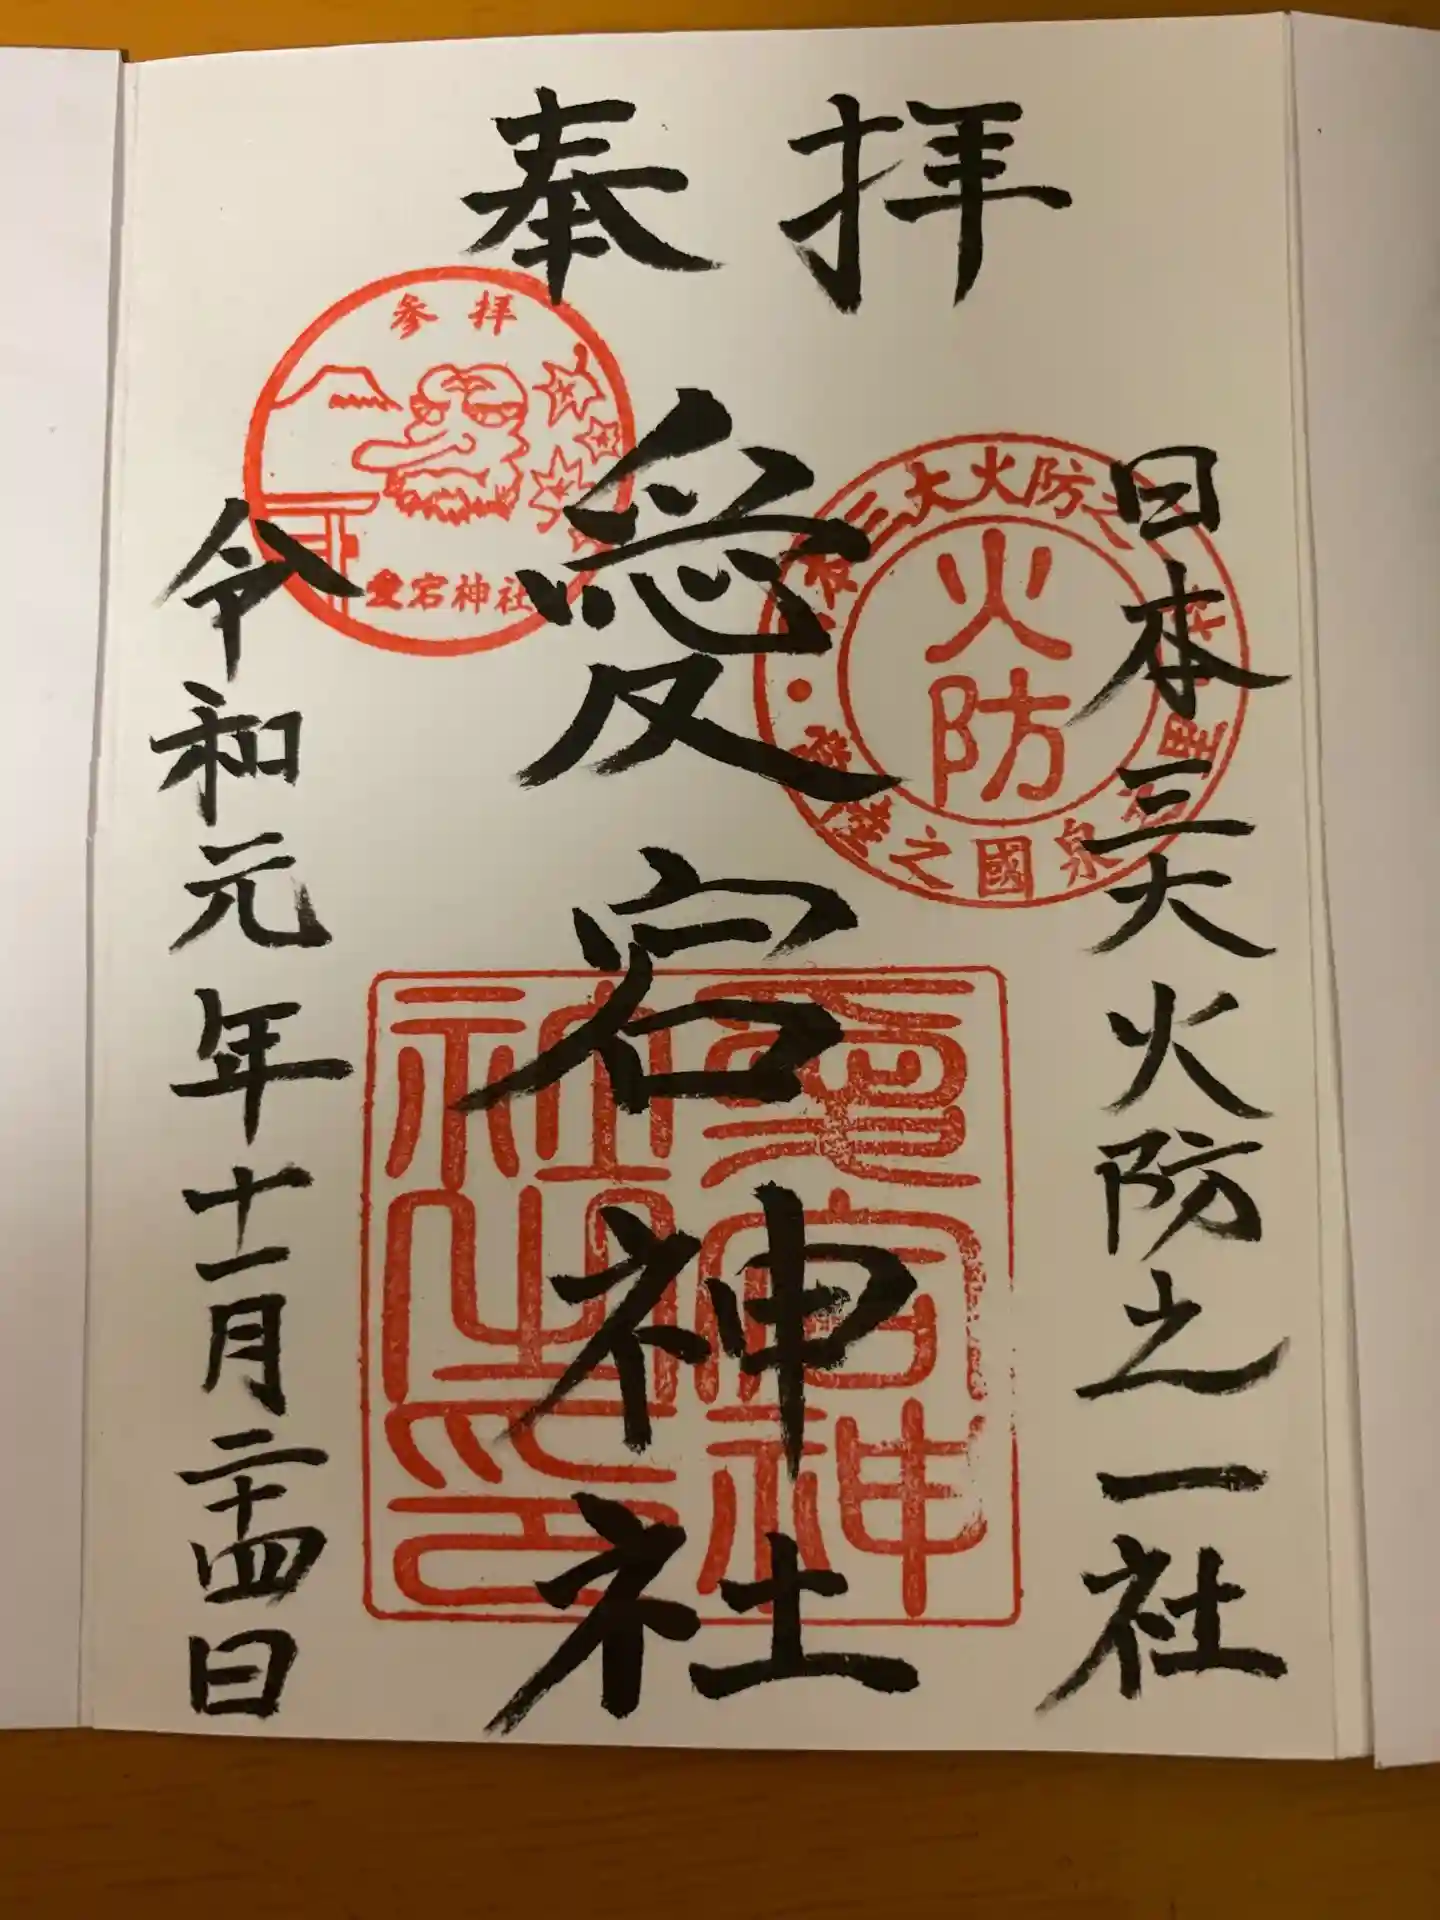 奉拝
日本三大火防之一社
愛宕神社
令和元年十一月二十四日
参拝
愛宕神社
三大火防之
火防
陸之國泉
愛宕神
社之印